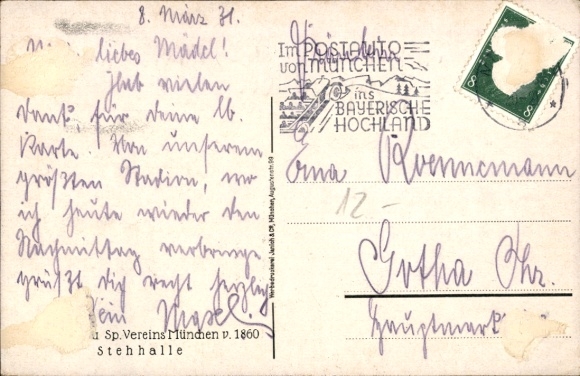 8. März 31.
liebes Mädel!
Hab vielen
Dank, für deine lb.
Karte. Von unserem
größten Stadion, wo
ich heute wieder den
Nachmittag verbringe
grüßt dich recht herzlich
Dein
u. Sp. Vereins München v. 1860
Stehhalle
Werbedruckerei Jentsch & Co, München, Augustenstr. 99
Im POSTAUTO
von MÜNCHEN
ins
BAYERISCHE
HOCHLAND
8 8
Fräulein
Erna Roennemann
12-
Gotha Thr.
Hauptmarkt